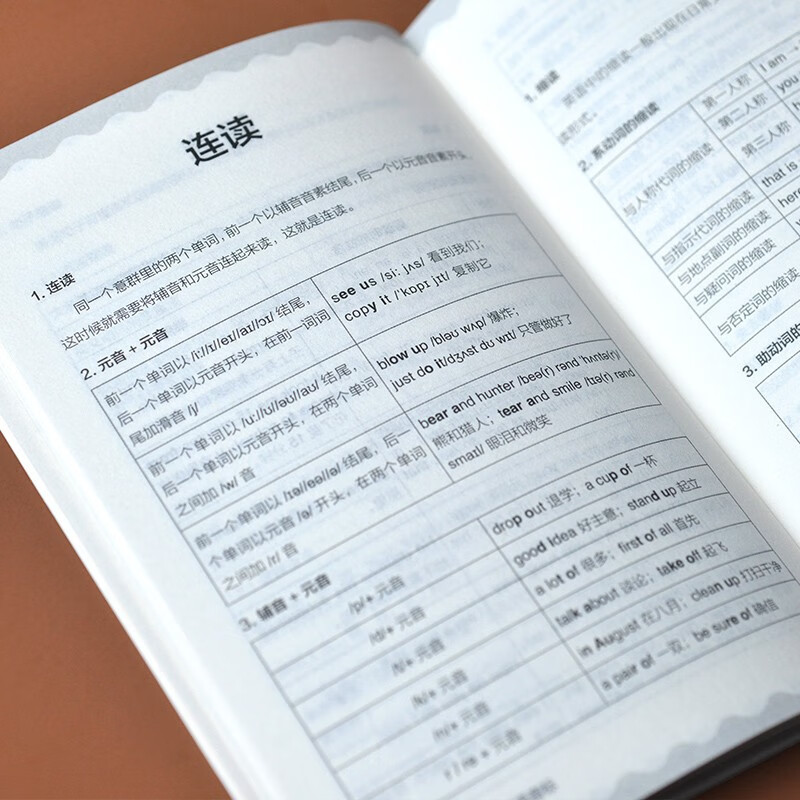 连读
1. 连读
同一个意群里的两个单词，前一个以辅音音素结尾，后一个以元音音素开头，
这时候就需要将辅音和元音连起来读，这就是连读。
2. 元音 + 元音
前一个单词以 /iː/ɪ/eɪ/aɪ/ɔɪ/ 结尾，
后一个单词以元音开头，在前一词词
尾加滑音 /j/
see us /siː jʌs/ 看到我们；
copy it /ˈkɒpɪ jɪt/ 复制它
前一个单词以 /uː/ʊ/əʊ/aʊ/ 结尾，
后一个单词以元音开头，在两个单词
之间加 /w/ 音
blow up /bləʊ wʌp/ 爆炸；
just do it/dʒʌst dʊ wɪt/ 只管做好了
前一个单词以 /ɪə/eə/ʊə/ə/ 结尾，后一
个单词以元音 /ə/ 开头，在两个单词
之间加 /r/ 音
bear and hunter /beə(r) rənd ˈhʌntə(r)/
熊和猎人；tear and smile /tɪə(r) rənd
smaɪl/ 眼泪和微笑
3. 辅音 + 元音
/p/+ 元音
drop out 退学；a cup of 一杯
/d/+ 元音
good idea 好主意；stand up 起立
/t/+ 元音
a lot of 很多；first of all 首先
/k/+ 元音
talk about 谈论；take off 起飞
/n/+ 元音
in August 在八月；clean up 打扫干净
r / re + 元音
a pair of 一双；be sure of 确信
1. 缩读
英语中的缩读一般出现在日常
2. 系动词的缩读
与人称代词的缩读
第一人称
I am →
第二人称
you
第三人称
与指示代词的缩读
that is
与地点副词的缩读
here
与疑问词的缩读
与否定词的缩读
3. 助动词的